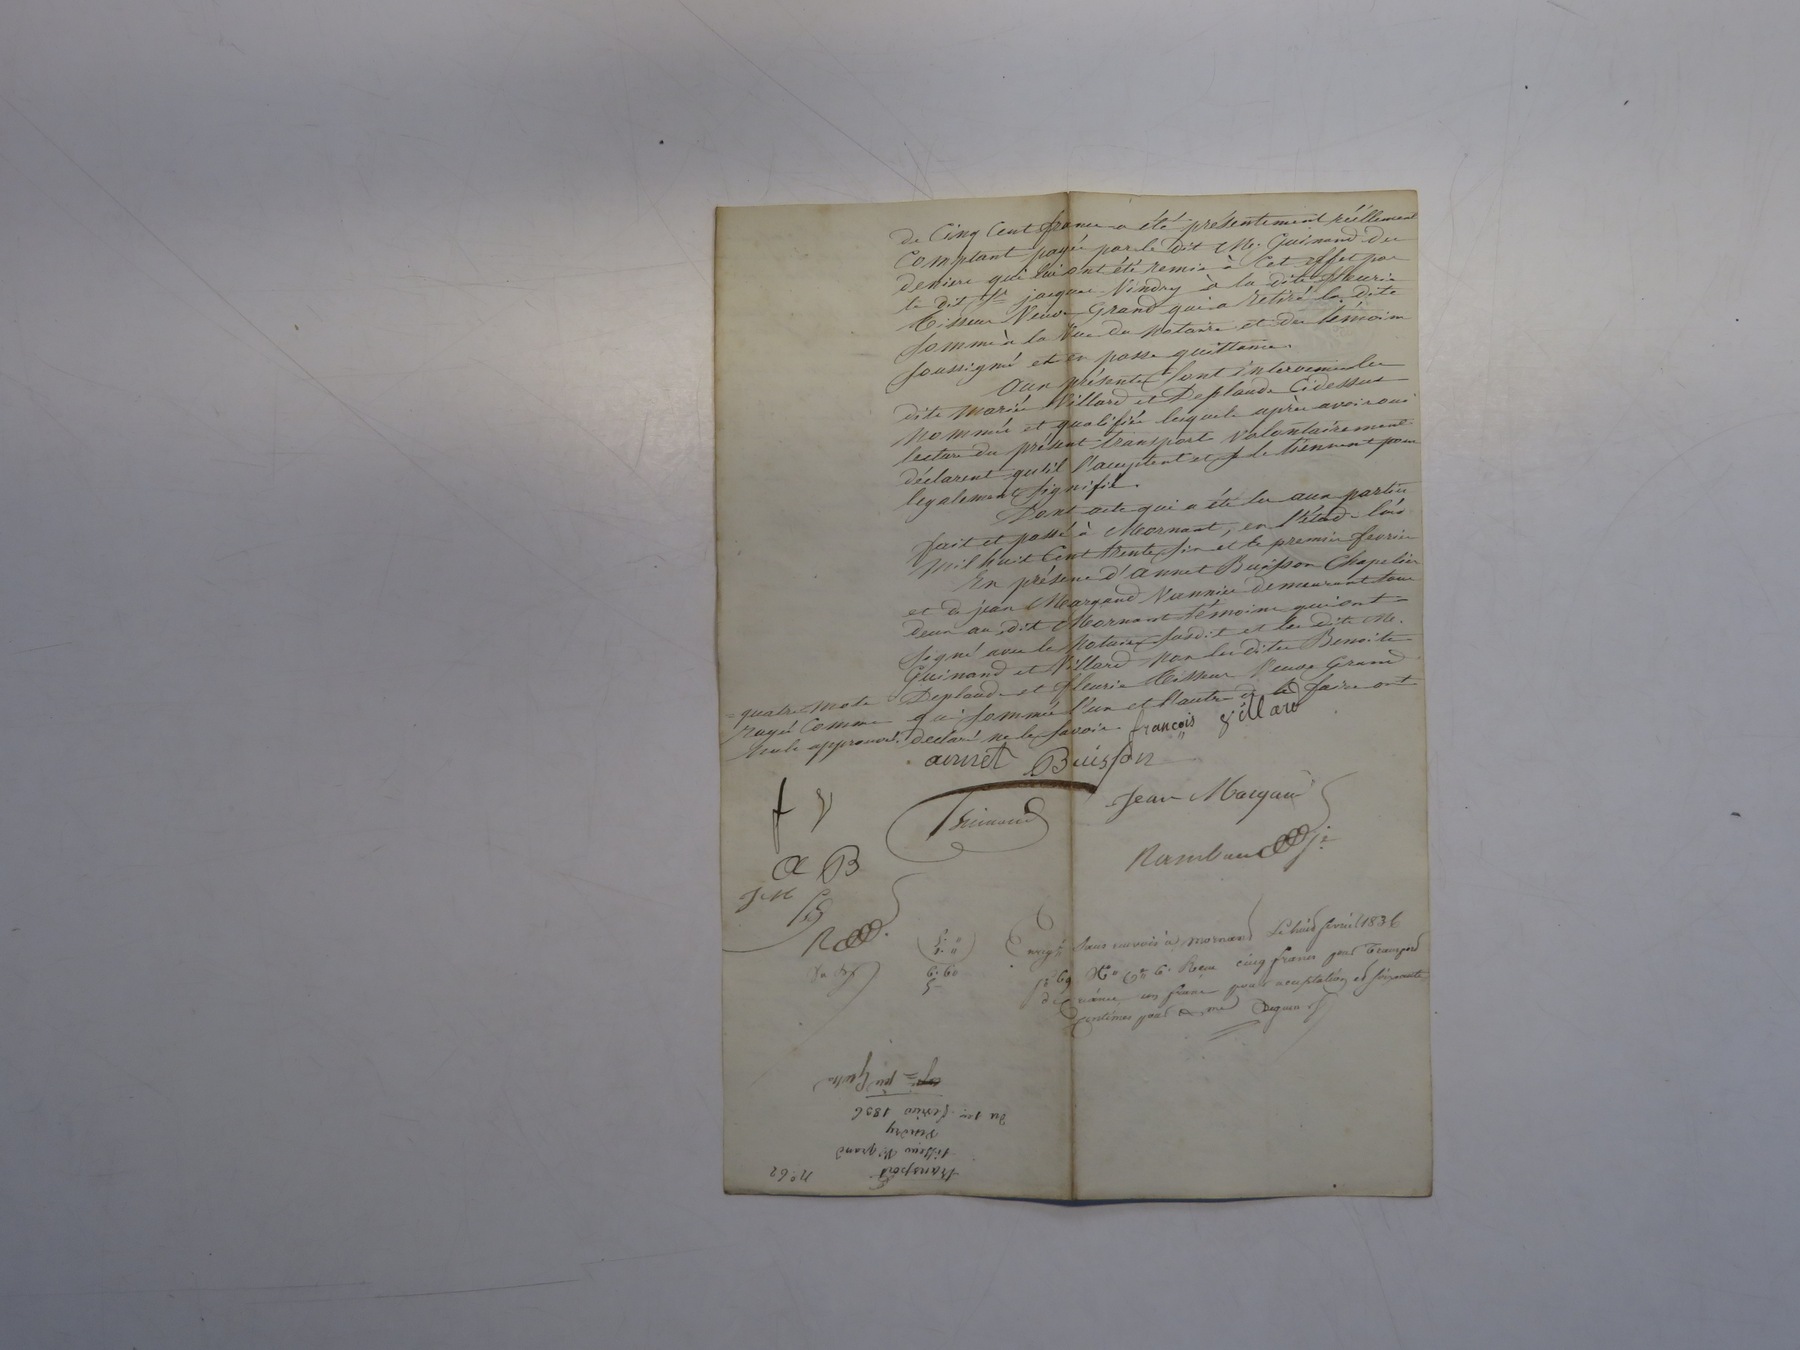 de Cinq Cent francs a été présentement réellement
Comptant payée par le dit Me. Guinand des
deniers qui lui ont été remis à Cet effet par
le dit Sr jacques Vindry à la dite fleurie
Tisseur Veuve Grand qui a retiré la dite
Somme à la Vue du Notaire et des témoins
soussignés et en passe quittance.
Aux présentes sont intervenus les
dits Mariés Villard et Desplaude Cidessus
Nommés et qualifiés lesquels après avoir oui
lecture du présent transport volontairement
déclarent qu'il l'acceptent et le tiennent pour
légalement signifié.
Dont acte qui a été lu aux parties
fait et passé à Mornant, en l'étude l'an
Mil huit Cent trente six et le premier février
En présence d'annet Buisson Chapelier
et de jean Margand Vannier demeurant tous
deux au dit Mornant témoins qui ont
signé avec le Notaire susdit et les dits M.
Guinand et Villard Non les dites Benoite
Desplaude et fleurie Tisseur Veuve Grand
qui sommés l'un et l'autre de le faire ont
déclaré ne le savoir.
quatre mots
rayés Comme
nuls approuvés
françois villard
annet Buisson
Jean Margand
Guinand
f v
a B
J M
Enregé sans renvois à Mornant Le huit février 1836
fo 69 Ro Ce 6. Reçu cinq francs pour Transport
de créance, un franc pour acceptation et soixante
Centimes pour
5.
".
6.60
No 62
Transport
tisseur Ve. grand
Vindry
du 1er février 1836